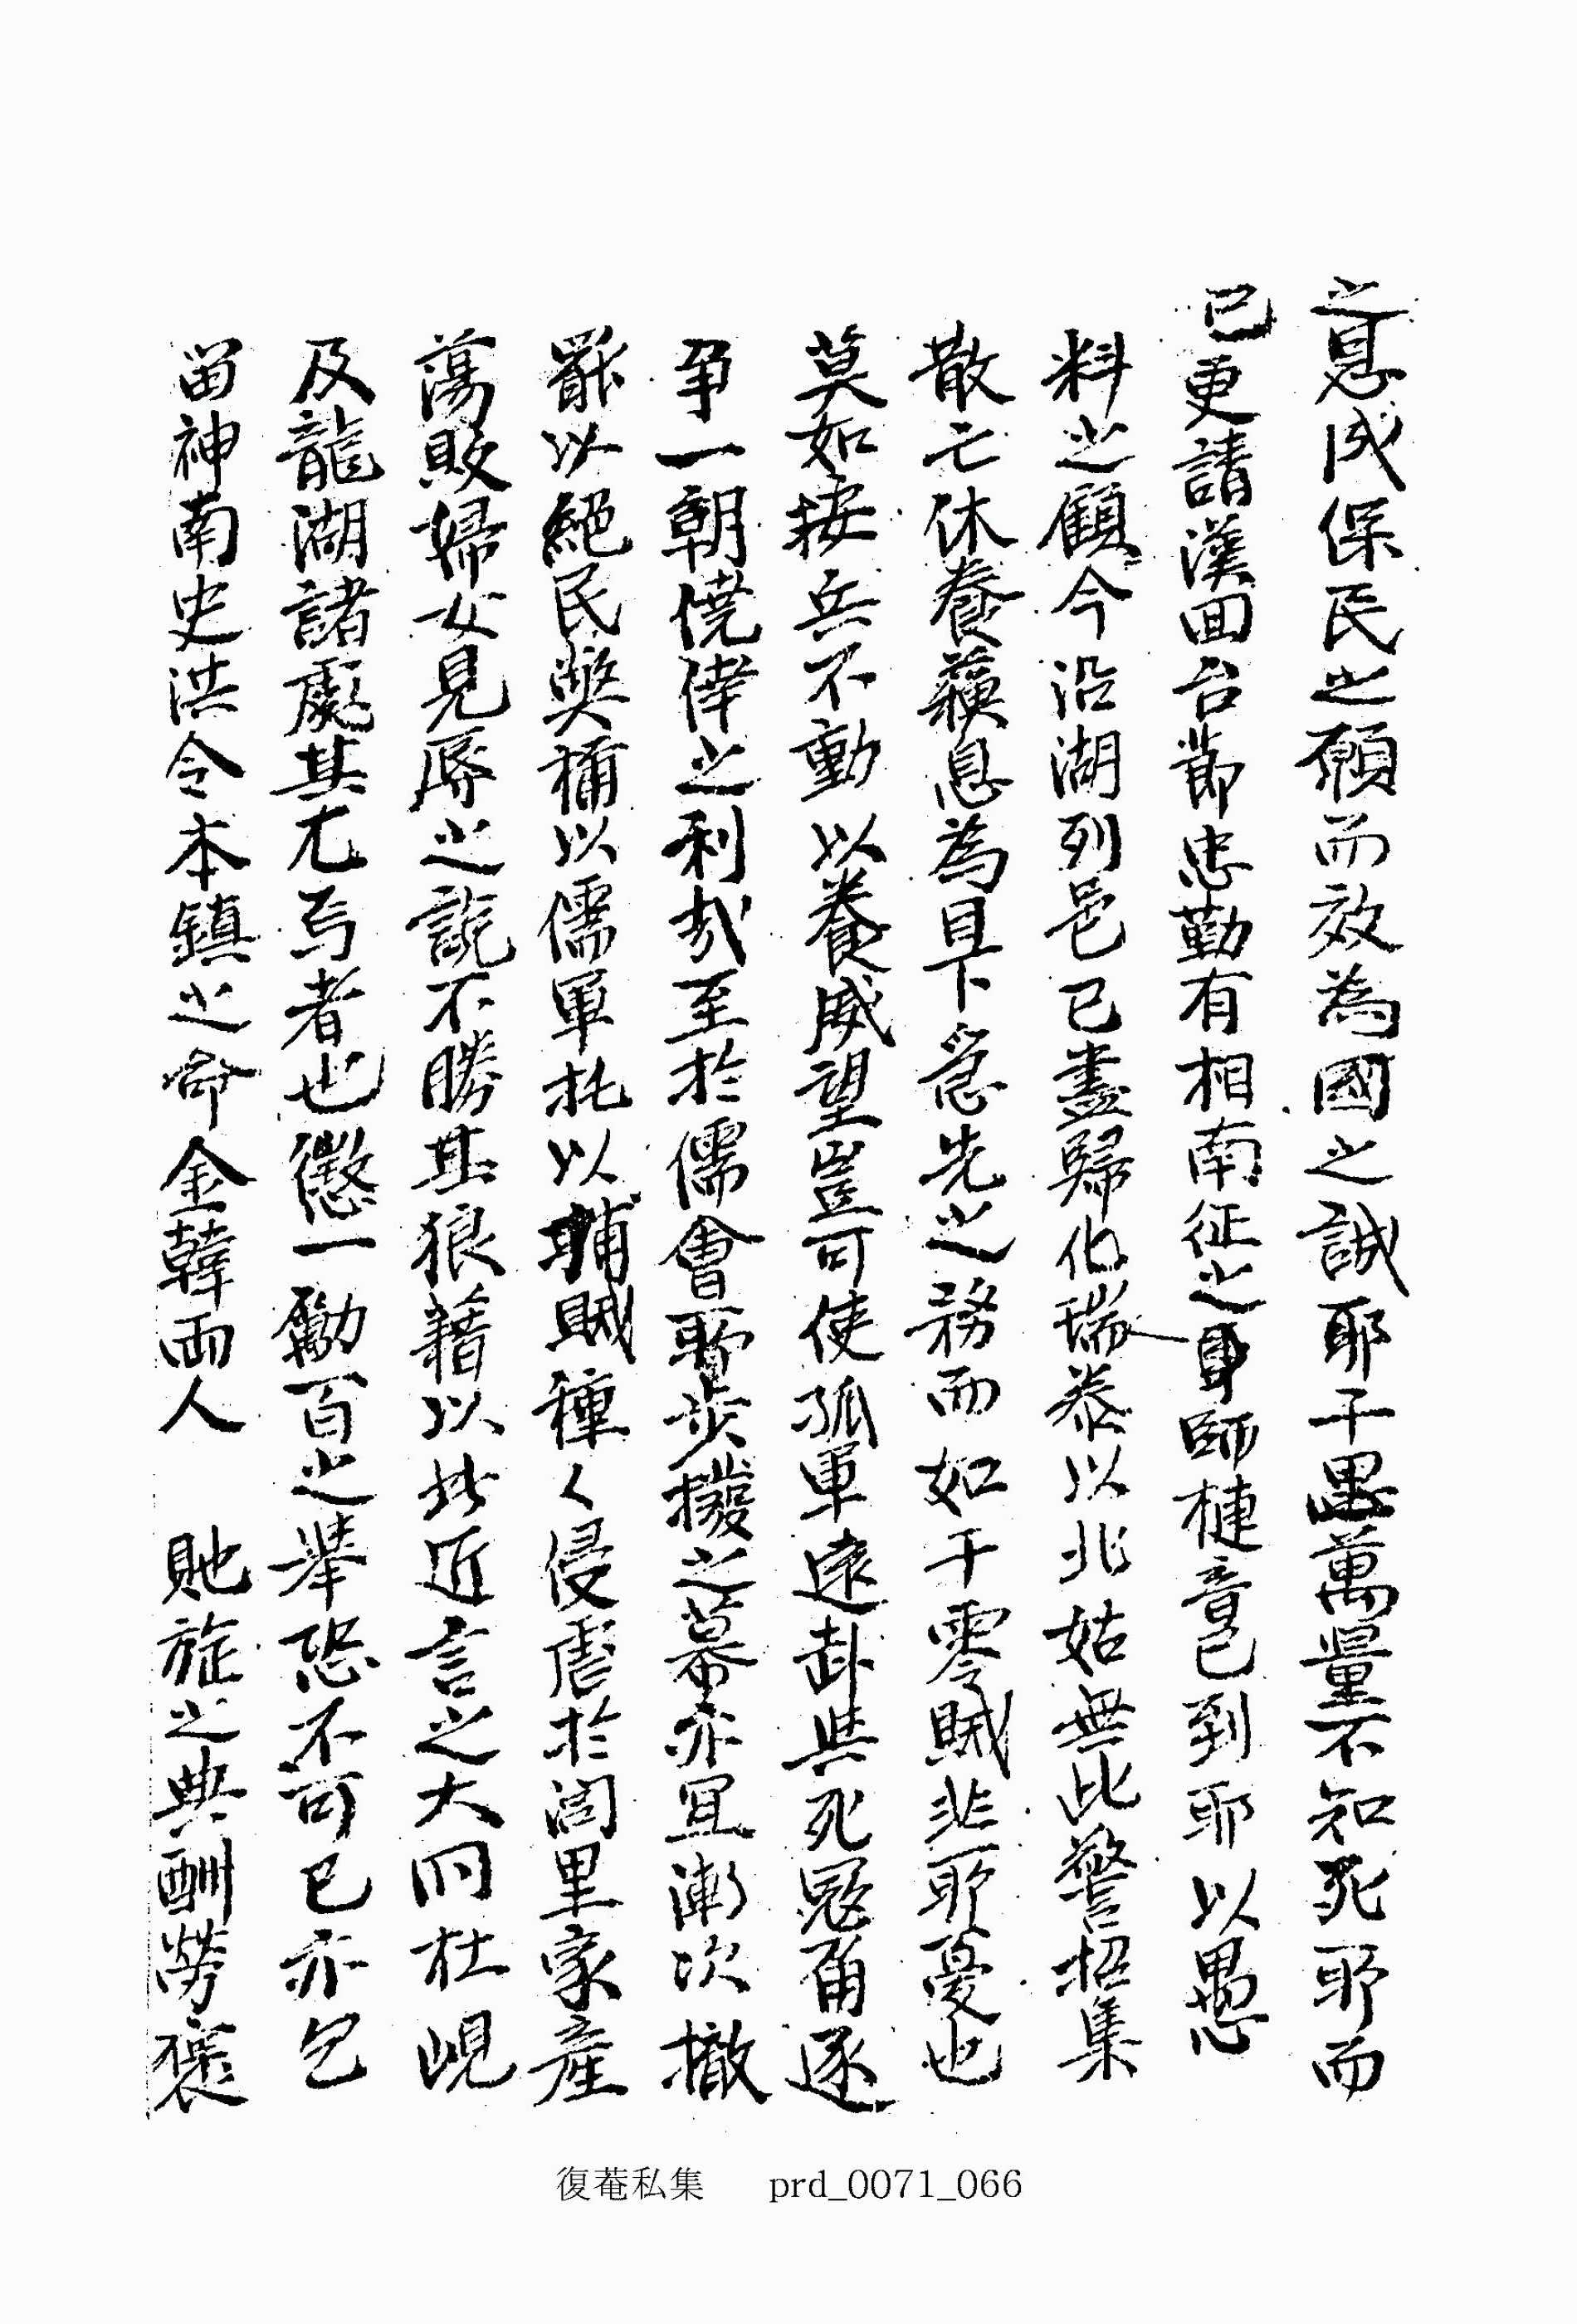 之息成保民之願而效為國之誠耶千思萬量不知死耶而
已更請漢回台節忠勤有相南征之師槤章已到耶以愚
料之顧今沿湖列邑已盡歸化瑞泰以北姑無此警招集
散亡休養蘇息為目下急先之務而如干零賊非耶憂也
莫如按兵不動以養威望豈可使孤軍遠赴與死寇角逐
爭一朝僥倖之利哉至於儒會耶步撥之幕亦宜漸次撤
罷以絕民弊稱以儒軍托以捕賊種〻侵虐於閭里家產
蕩敗婦女見辱之說不勝其狼藉以此近言之大同杜峴
及龍湖諸處其尤焉者也懲一勵百之舉恐不可已亦乞
留神南史洪令本鎮之命金韓兩人 貤旌之典酬勞褒
復菴私集 prd_0071_066